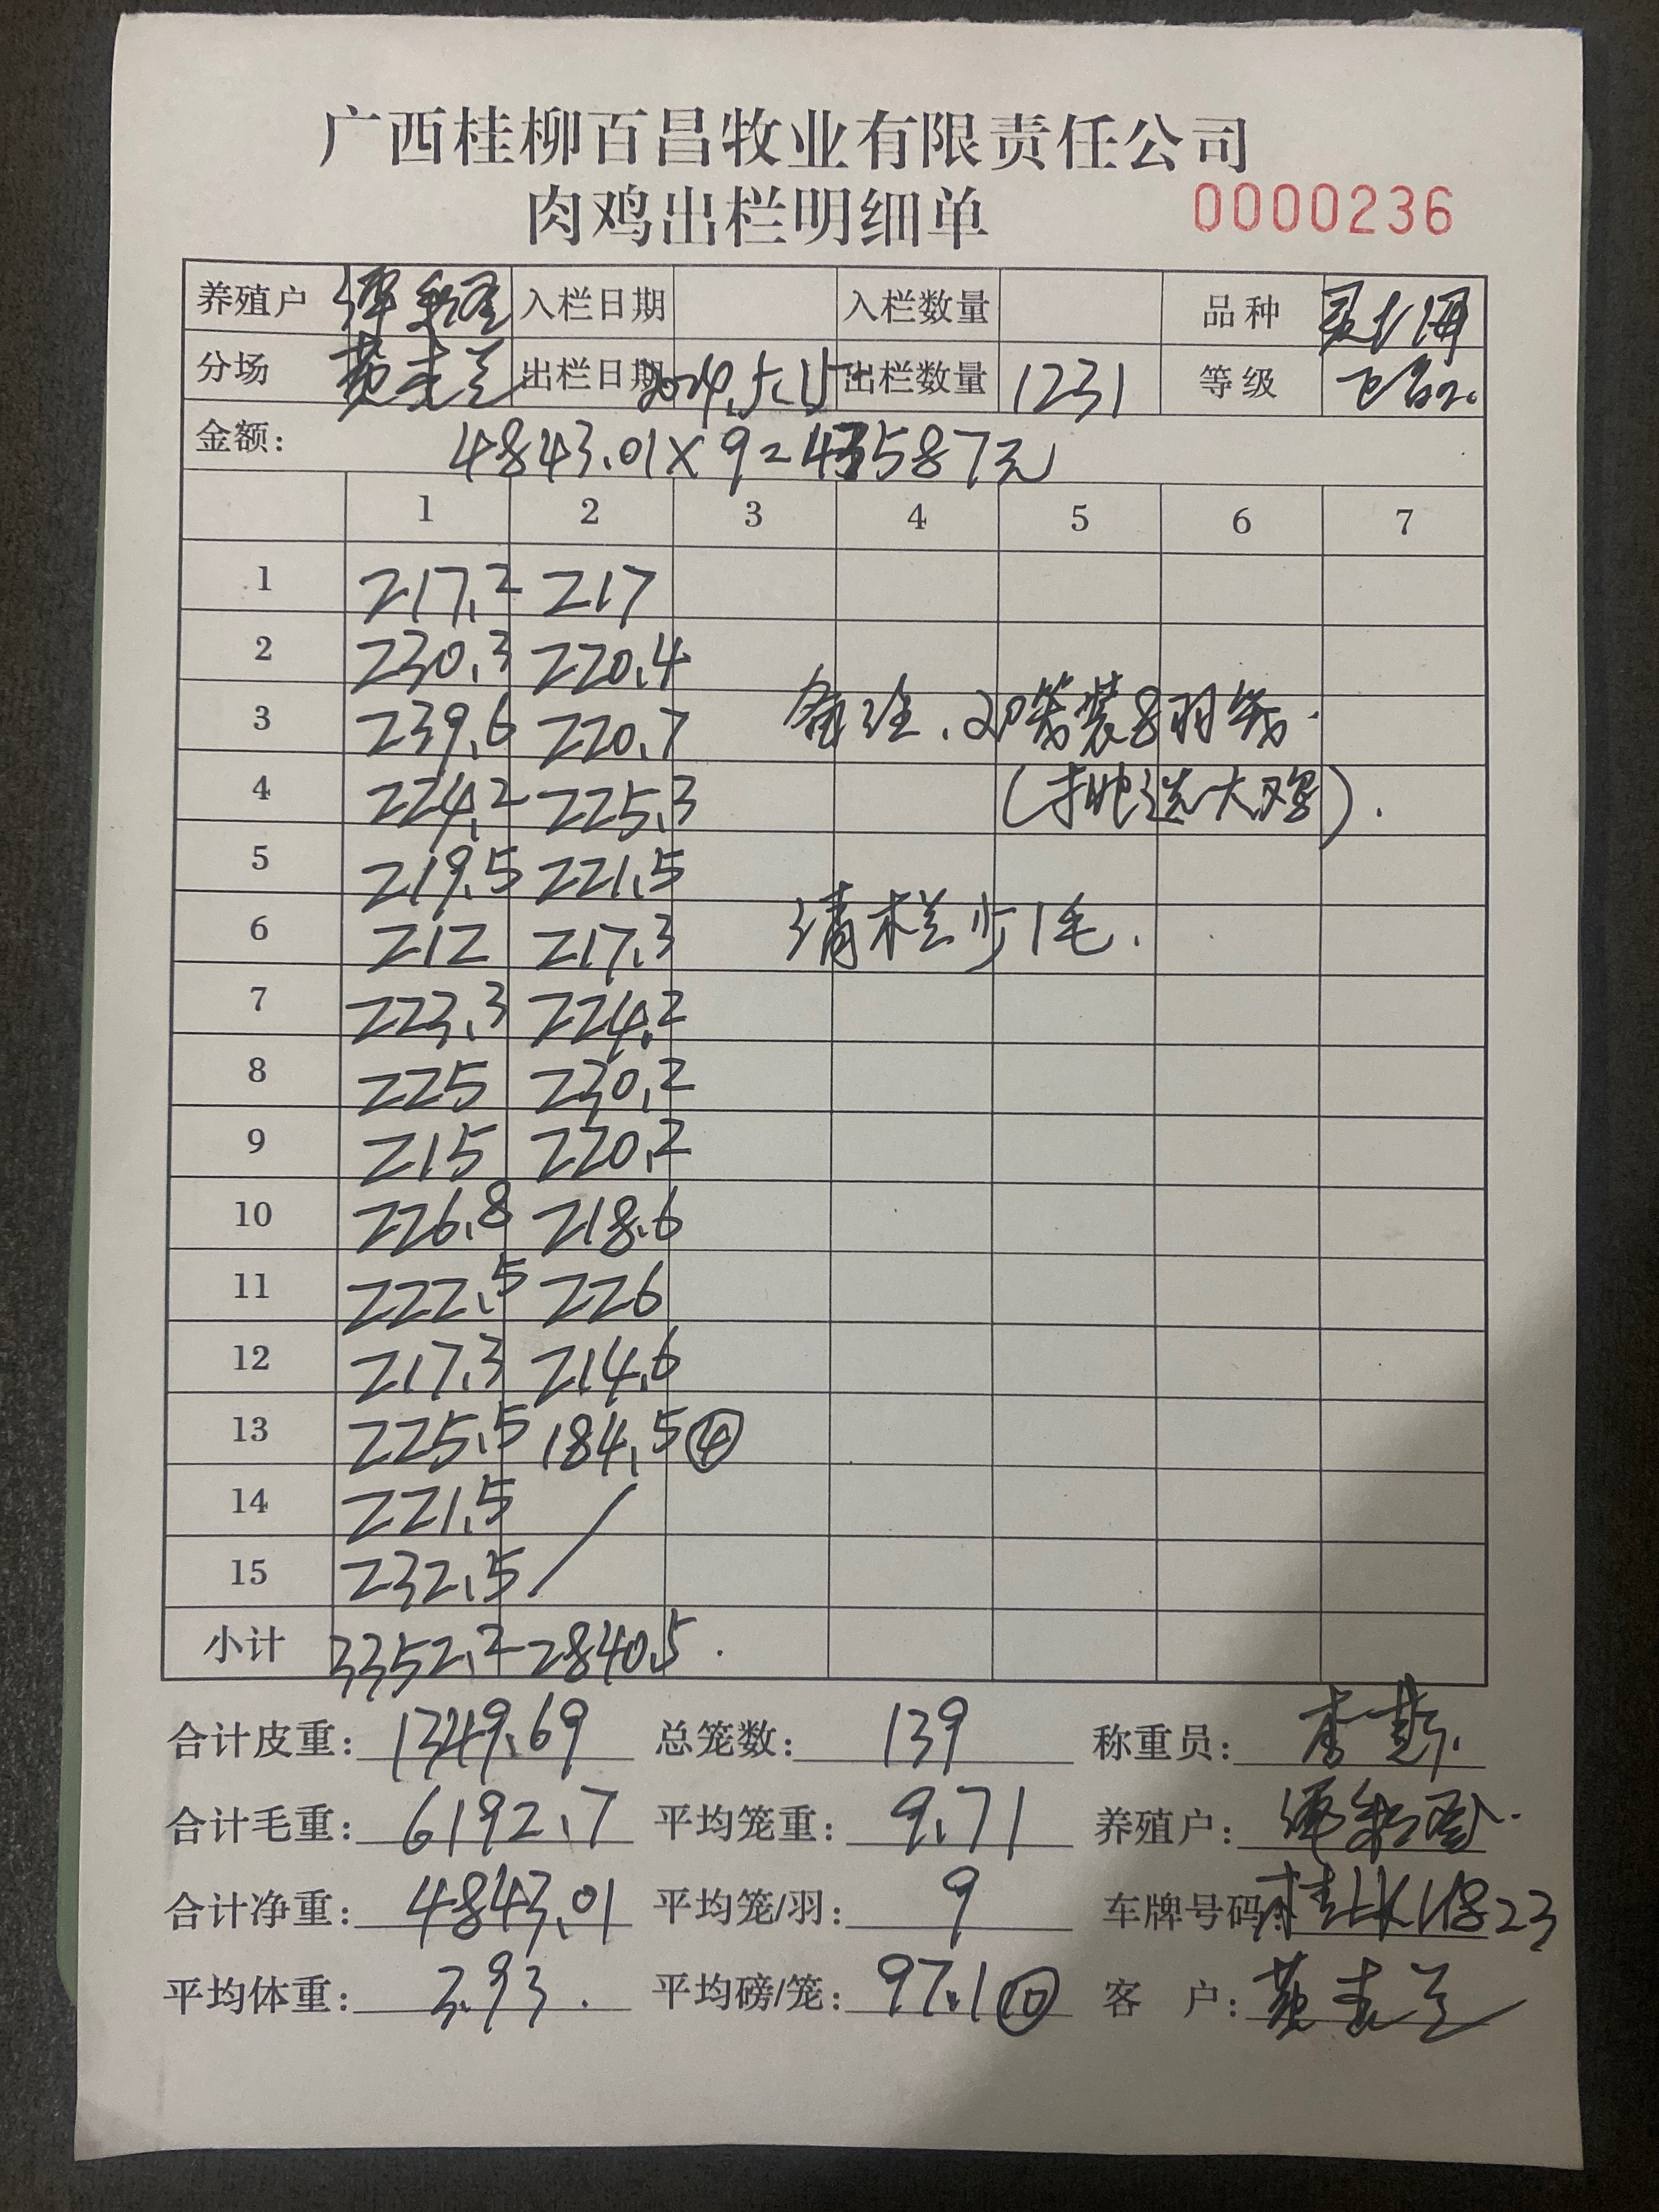 广西桂柳百昌牧业有限责任公司
肉鸡出栏明细单 0000236
养殖户 入栏日期 入栏数量 品种
分场 黄志兰 出栏日期 2024.5.15 出栏数量 1231 等级
金额: 4843.01×9=43587元
1 2 3 4 5 6 7
1 217.2 217
2 230.3 220.4
3 239.6 220.7 备注.20笼装8羽笼.
4 224.2 225.3 (挑选大鸡).
5 219.5 221.5
6 212 217.3 清栏少1毛.
7 223.3 224.2
8 225 230.2
9 215 220.2
10 226.8 218.6
11 222.5 226
12 217.3 214.6
13 225.5 184.5④
14 221.5
15 232.5
小计 3352.2 2840.5
合计皮重: 1349.69 总笼数: 139 称重员:
合计毛重: 6192.7 平均笼重: 9.71 养殖户:
合计净重: 4843.01 平均笼/羽: 9 车牌号码:
平均体重: 3.93 平均磅/笼: 97.1⑩ 客 户: 黄志兰